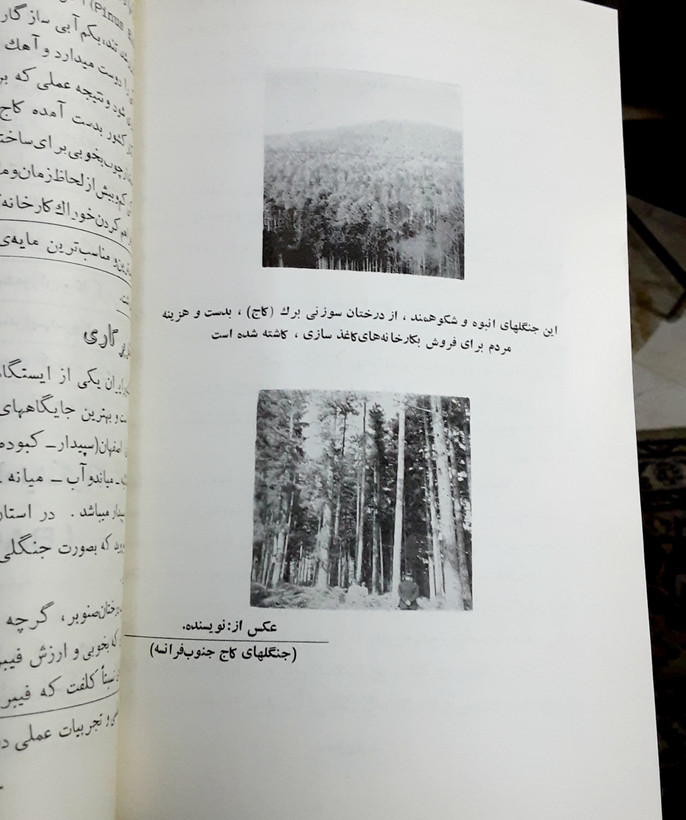 این جنگلهای انبوه و شکوهمند ، از درختان سوزنی برك (کاج) ، بدست و هزینه
مردم برای فروش بکارخانه‌های کاغذ سازی ، کاشته شده است
عکس از: نویسنده.
(جنگلهای کاج جنوب فرانسه)
(Pinus
یکم آبی ساز گار
را دوست میدارد و آهك
شود و نتیجه عملی که بر
کشور بدست آمده کاج
چوب بخوبی برای ساخت
کم و بیش از لحاظ زمان و
کردن خوراك کارخانه
و مناسب‌ترین مایه‌ی
کاری
ایران یکی از ایستگا
و بهترین جایگاههای
اصفهان (سپیدار ـ کبوده
میاندوآب ـ میانه ـ
میباشد . در استان
که بصورت جنگلی
درختان صنوبر، گرچه
که بخوبی و ارزش فیبر
نسبتاً کلفت که فیبر
و تجربیات عملی در